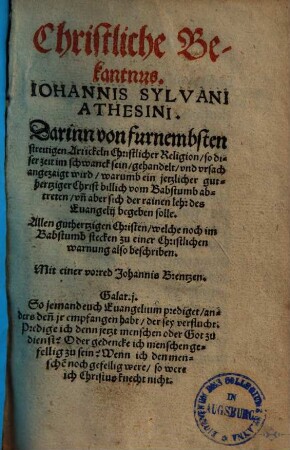 Christliche Be-
kantnus.
IOHANNIS SYLVANI
ATHESINI.
Darinn von furnembsten
streitigen Artickeln Christlicher Religion / so di-
ser zeit im schwanck sein / gehandelt / vnd vrsach
angezaigt wird / warumb ein jetzlicher gut-
hertziger Christ billich vom Babstumb ab-
treten / vñ aber sich der rainen lehr des
Euangelij begeben solle.
Allen gutherzigen Christen / welche noch im
Babstumb stecken zu einer Christlichen
warnung also beschriben.
Mit einer vorred Johannis Brentzen.
Galat. j.
So jemand euch Euangelium prediget / an-
ders deñ jr empfangen habt / der sey verflucht.
Predige ich denn jetzt menschen oder Got zu
dienst? Oder gedencke ich menschen ge-
fellig zu sein? Wenn ich den men-
schẽ noch gefellig were / so were
ich Christus knecht nicht.
IN
AUGSBURG